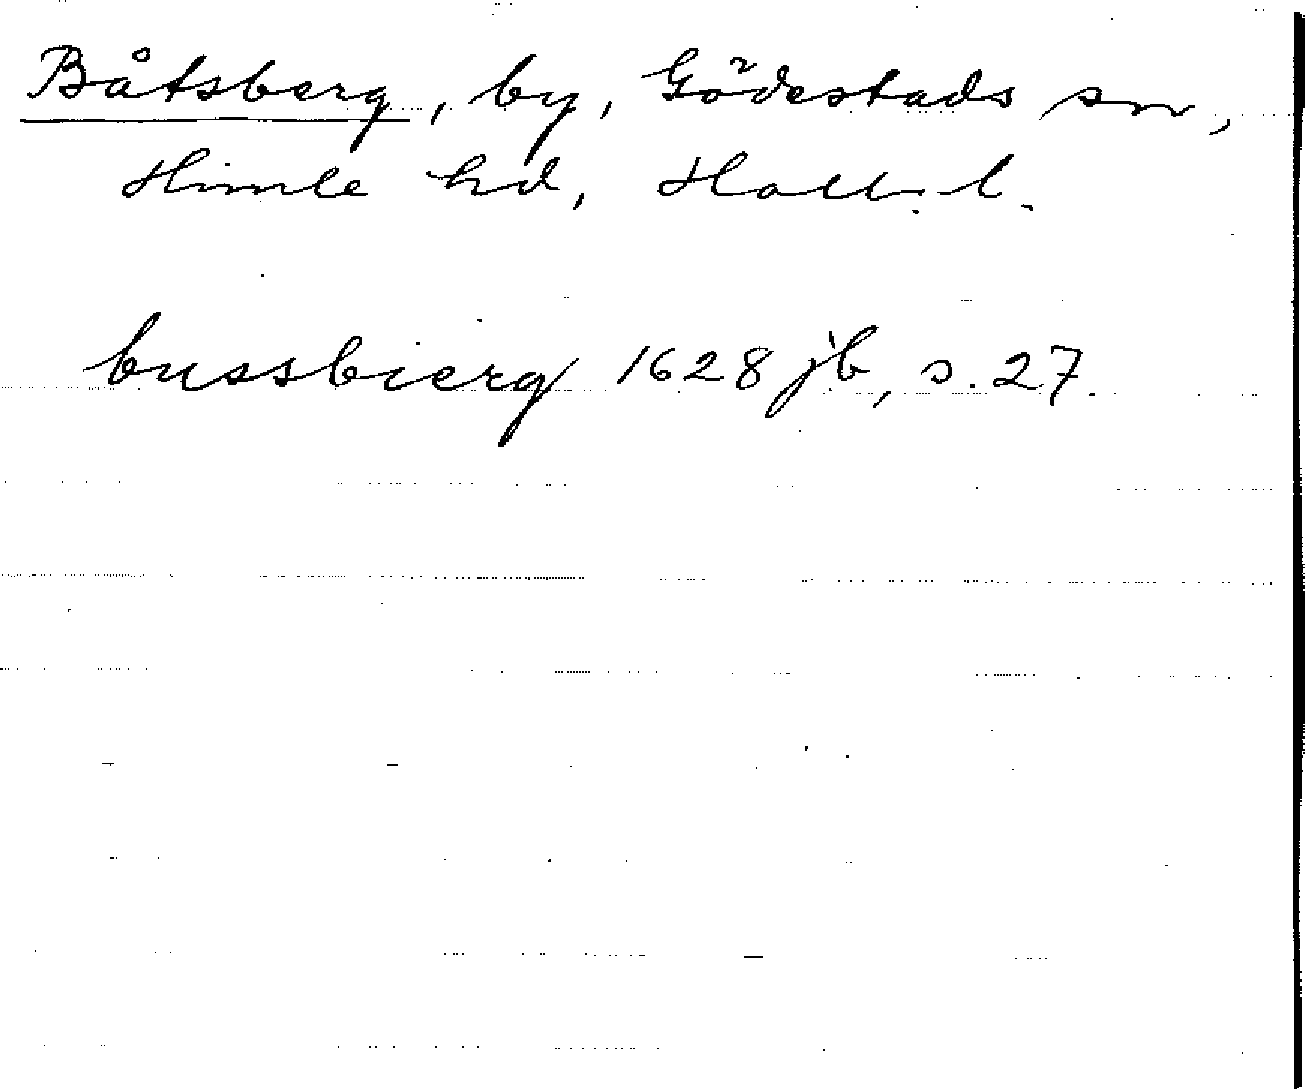 Båtsberg, by, Gödestads sn,
Himle hd, Hall. l.
bussbierg 1628 jb, s. 27.